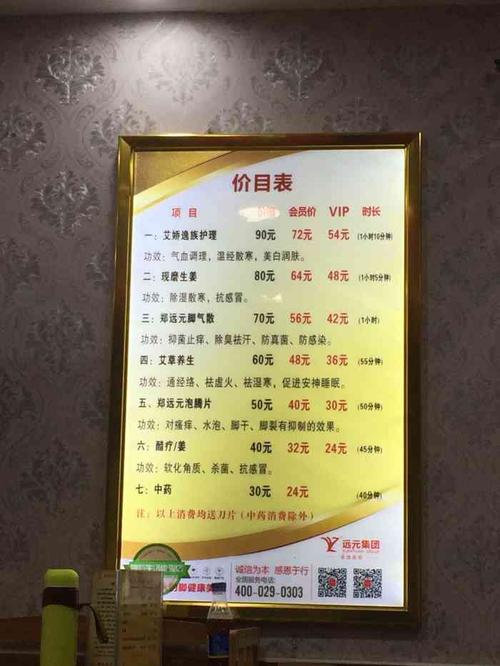 价目表
项目 会员价 VIP 时长
一：艾娇逸族护理 90元 72元 54元 (1小时10分钟)
功效：气血调理，温经散寒，美白润肤。
二：现磨生姜 80元 64元 48元 (1小时5分钟)
功效：除湿散寒、抗感冒。
三：郑远元脚气散 70元 56元 42元 (1小时)
功效：抑菌止痒、除臭祛汗、防真菌、防感染。
四：艾草养生 60元 48元 36元 (55分钟)
功效：通经络、祛虚火、祛湿寒，促进安神睡眠。
五、郑远元泡腾片 50元 40元 30元 (50分钟)
功效：对瘙痒、水泡、脚干、脚裂有抑制的效果。
六：醋疗/姜 40元 32元 24元 (45分钟)
功效：软化角质、杀菌、抗感冒。
七：中药 30元 24元 (40分钟)
注：以上消费均送刀片（中药消费除外）
远元集团
诚信为本 感恩于行
全国服务电话：
400-029-0303
脚健康